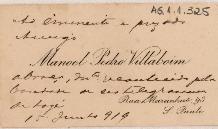 AS.1.1.325
Ao Eminente e prezado
Amigo
Manoel Pedro Villaboim
abraça, reconhecido pela
de seu telegramma
de hoje
Rua Maranhão,
S. Paulo
1º Junho 919